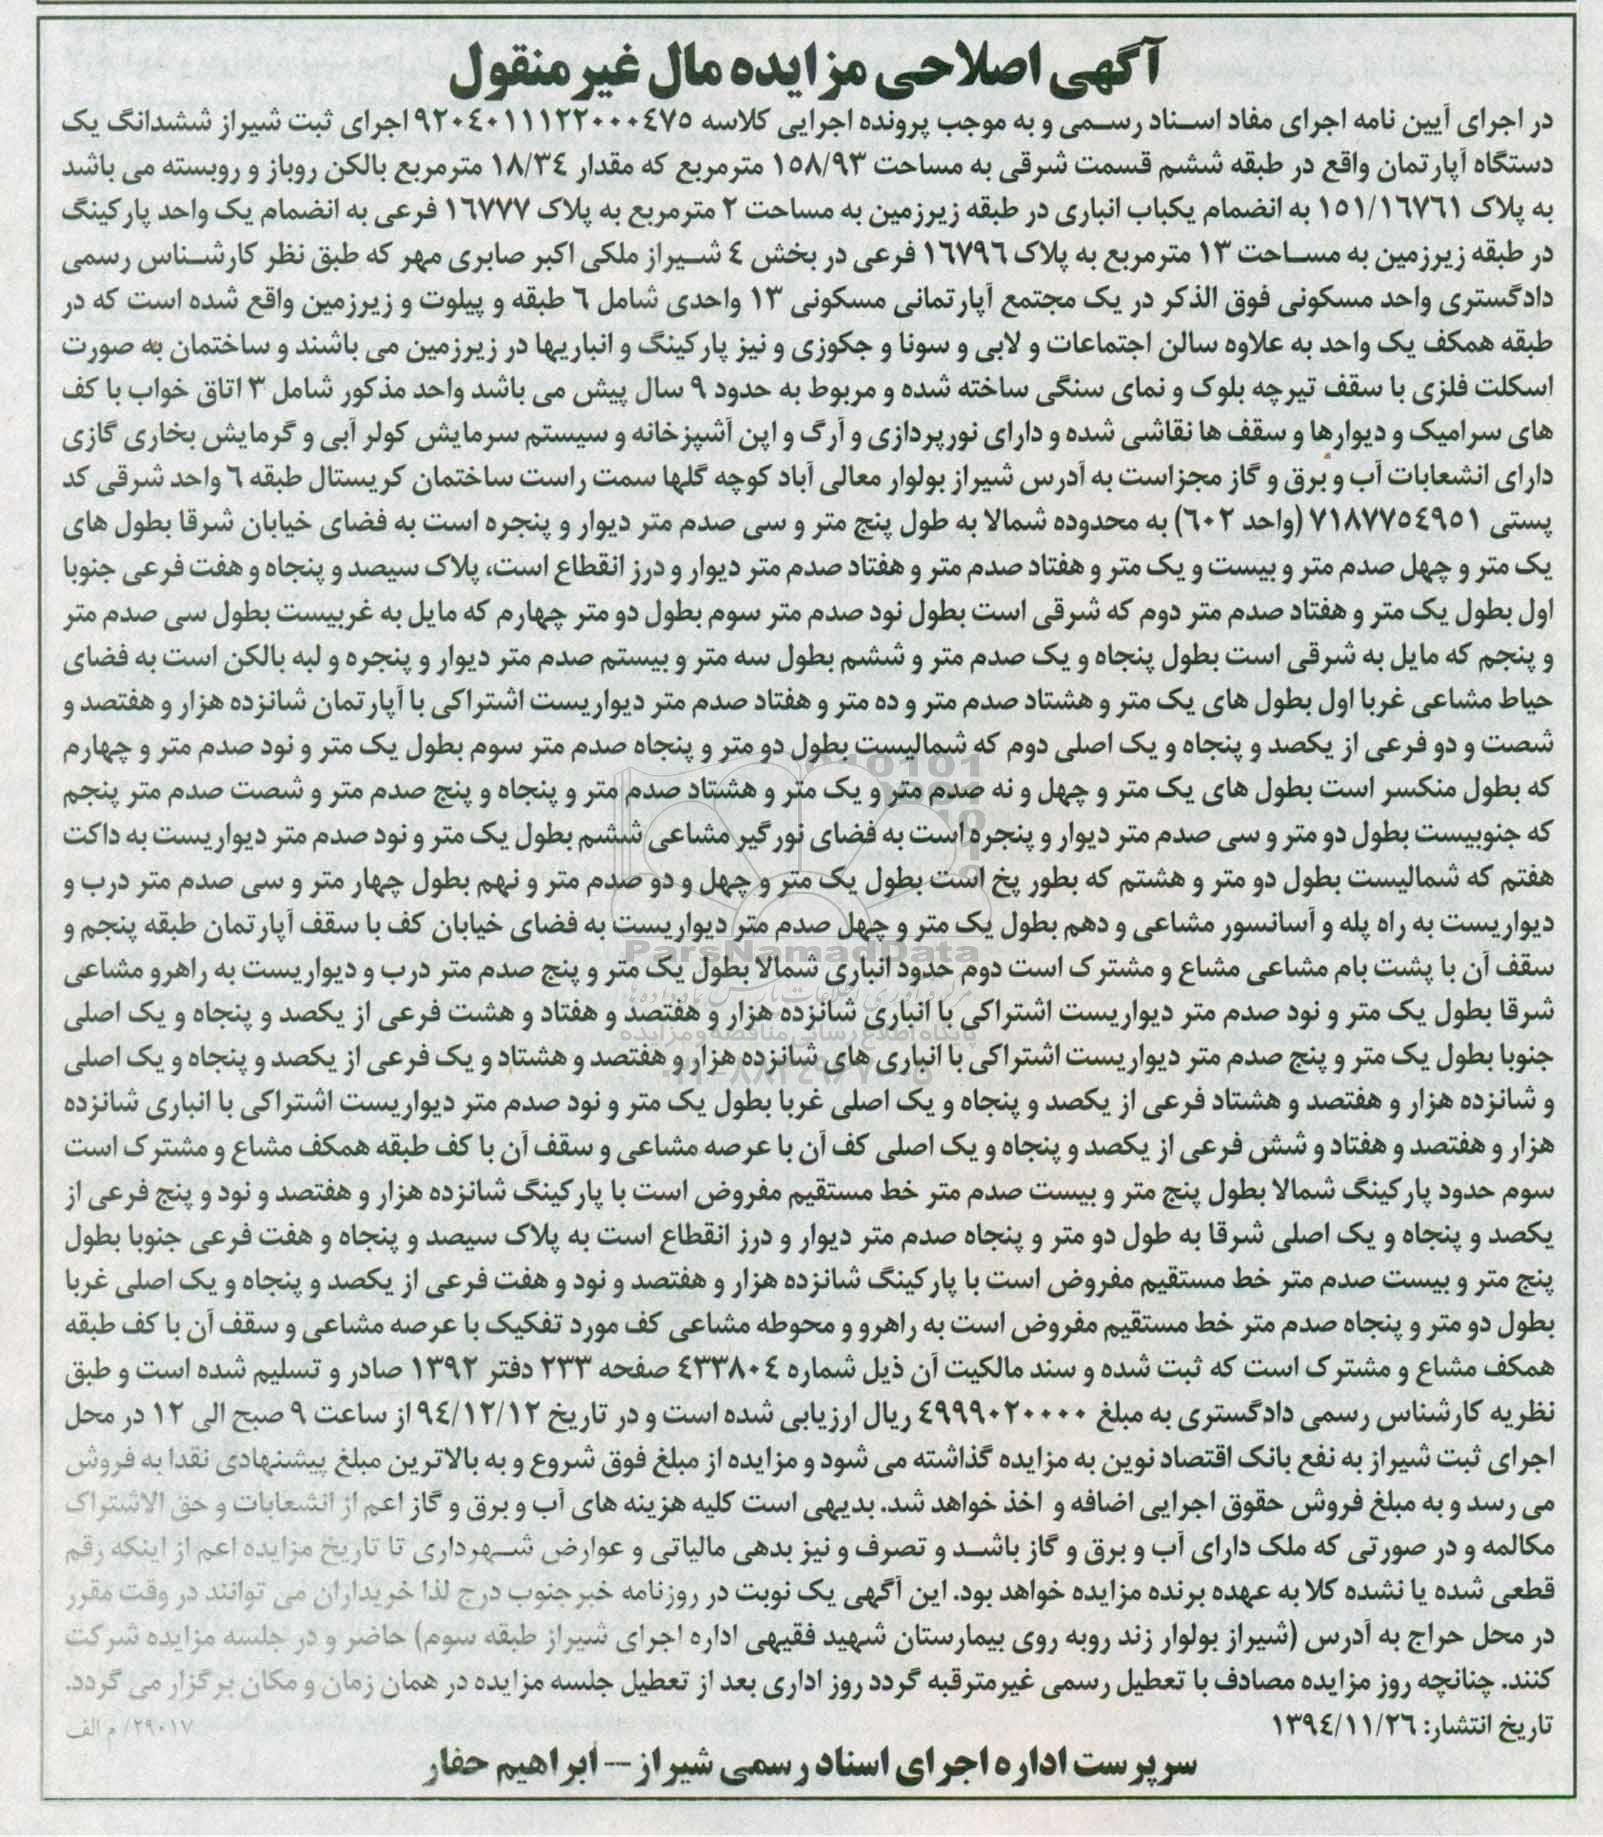 آگهی اصلاحی مزایده مال غیر منقول
در اجرای آیین نامه اجرای مفاد اسناد رسمی و به موجب پرونده اجرایی کلاسه ۹۲۰۴۰۱۱۱۲۲۰۰۰۴۷۵ اجرای ثبت شیراز ششدانگ یک
دستگاه آپارتمان واقع در طبقه ششم قسمت شرقی به مساحت ۱۵۸/۹۳ مترمربع که مقدار ۱۸/۳۴ مترمربع بالکن روباز و روبسته می باشد
به پلاک ۱۵۱/۱۶۷۶۱ به انضمام یکباب انباری در طبقه زیرزمین به مساحت ۲ مترمربع به پلاک ۱۶۷۷۷ فرعی به انضمام یک واحد پارکینگ
در طبقه زیرزمین به مساحت ۱۳ مترمربع به پلاک ۱۶۷۹۶ فرعی در بخش ۴ شیراز ملکی اکبر صابری مهر که طبق نظر کارشناس رسمی
دادگستری واحد مسکونی فوق الذکر در یک مجتمع آپارتمانی مسکونی ۱۳ واحدی شامل ۶ طبقه و پیلوت و زیرزمین واقع شده است که در
طبقه همکف یک واحد به علاوه سالن اجتماعات و لابی و سونا و جکوزی و نیز پارکینگ و انباریها در زیرزمین می باشند و ساختمان به صورت
اسکلت فلزی با سقف تیرچه بلوک و نمای سنگی ساخته شده و مربوط به حدود ۹ سال پیش می باشد واحد مذکور شامل ۳ اتاق خواب با کف
های سرامیک و دیوارها و سقف ها نقاشی شده و دارای نورپردازی و آرگ و اپن آشپزخانه و سیستم سرمایش کولر آبی و گرمایش بخاری گازی
دارای انشعابات آب و برق و گاز مجزاست به آدرس شیراز بولوار معالی آباد کوچه گلها سمت راست ساختمان کریستال طبقه ۶ واحد شرقی کد
پستی ۷۱۸۷۷۵۴۹۵۱ (واحد ۶۰۲) به محدوده شمالا به طول پنج متر و سی صدم متر دیوار و پنجره است به فضای خیابان شرقا بطول های
یک متر و چهل صدم متر و بیست و یک متر و هفتاد صدم متر و هفتاد صدم متر دیوار و درز انقطاع است، پلاک سیصد و پنجاه و هفت فرعی جنوبا
اول بطول یک متر و هفتاد صدم متر دوم که شرقی است بطول نود صدم متر سوم بطول دو متر چهارم که مایل به غربیست بطول سی صدم متر
و پنجم که مایل به شرقی است بطول پنجاه و یک صدم متر و ششم بطول سه متر و بیستم صدم متر دیوار و پنجره و لبه بالکن است به فضای
حیاط مشاعی غربا اول بطول های یک متر و هشتاد صدم متر و ده متر و هفتاد صدم متر دیواریست اشتراکی با آپارتمان شانزده هزار و هفتصد و
شصت و دو فرعی از یکصد و پنجاه و یک اصلی دوم که شمالیست بطول دو متر و پنجاه صدم متر سوم بطول یک متر و نود صدم متر و چهارم
که بطول منکسر است بطول های یک متر و چهل و نه صدم متر و یک متر و هشتاد صدم متر و پنجاه و پنج صدم متر و شصت صدم متر پنجم
که جنوبیست بطول دو متر و سی صدم متر دیوار و پنجره است به فضای نورگیر مشاعی ششم بطول یک متر و نود صدم متر دیواریست به داکت
هفتم که شمالیست بطول دو متر و هشتم که بطور پخ است بطول یک متر و چهل و دو صدم متر و نهم بطول چهار متر و سی صدم متر درب و
دیواریست به راه پله و آسانسور مشاعی و دهم بطول یک متر و چهل صدم متر دیواریست به فضای خیابان کف با سقف آپارتمان طبقه پنجم و
سقف آن با پشت بام مشاعی مشاع و مشترک است دوم حدود انباری شمالا بطول یک متر و پنج صدم متر درب و دیواریست به راهرو مشاعی
شرقا بطول یک متر و نود صدم متر دیواریست اشتراکی با انباری شانزده هزار و هفتصد و هفتاد و هشت فرعی از یکصد و پنجاه و یک اصلی
جنوبا بطول یک متر و پنج صدم متر دیواریست اشتراکی با انباری های شانزده هزار و هفتصد و هشتاد و یک فرعی از یکصد و پنجاه و یک اصلی
و شانزده هزار و هفتصد و هشتاد فرعی از یکصد و پنجاه و یک اصلی غربا بطول یک متر و نود صدم متر دیواریست اشتراکی با انباری شانزده
هزار و هفتصد و هفتاد و شش فرعی از یکصد و پنجاه و یک اصلی کف آن با عرصه مشاعی و سقف آن با کف طبقه همکف مشاع و مشترک است
سوم حدود پارکینگ شمالا بطول پنج متر و بیست صدم متر خط مستقیم مفروض است با پارکینگ شانزده هزار و هفتصد و نود و پنج فرعی از
یکصد و پنجاه و یک اصلی شرقا به طول دو متر و پنجاه صدم متر دیوار و درز انقطاع است به پلاک سیصد و پنجاه و هفت فرعی جنوبا بطول
پنج متر و بیست صدم متر خط مستقیم مفروض است با پارکینگ شانزده هزار و هفتصد و نود و هفت فرعی از یکصد و پنجاه و یک اصلی غربا
بطول دو متر و پنجاه صدم متر خط مستقیم مفروض است به راهرو و محوطه مشاعی کف مورد تفکیک با عرصه مشاعی و سقف آن با کف طبقه
همکف مشاع و مشترک است که ثبت شده و سند مالکیت آن ذیل شماره ۴۳۳۸۰۴ صفحه ۲۳۳ دفتر ۱۳۹۲ صادر و تسلیم شده است و طبق
نظریه کارشناس رسمی دادگستری به مبلغ ۴۹۹۹۰۲۰۰۰۰ ریال ارزیابی شده است و در تاریخ ۹۴/۱۲/۱۲ از ساعت ۹ صبح الی ۱۲ در محل
اجرای ثبت شیراز به نفع بانک اقتصاد نوین به مزایده گذاشته می شود و مزایده از مبلغ فوق شروع و به بالاترین مبلغ پیشنهادی نقدا به فروش
می رسد و به مبلغ فروش حقوق اجرایی اضافه و اخذ خواهد شد. بدیهی است کلیه هزینه های آب و برق و گاز اعم از انشعابات و حق الاشتراک
مکالمه و در صورتی که ملک دارای آب و برق و گاز باشد و تصرف و نیز بدهی مالیاتی و عوارض شهرداری تا تاریخ مزایده اعم از اینکه رقم
قطعی شده یا نشده کلا به عهده برنده مزایده خواهد بود. این آگهی یک نوبت در روزنامه خبرجنوب درج لذا خریداران می توانند در وقت مقرر
در محل حراج به آدرس (شیراز بولوار زند روبه روی بیمارستان شهید فقیهی اداره اجرای شیراز طبقه سوم) حاضر و در جلسه مزایده شرکت
کنند. چنانچه روز مزایده مصادف با تعطیل رسمی غیرمترقبه گردد روز اداری بعد از تعطیل جلسه مزایده در همان زمان و مکان برگزار می گردد.
تاریخ انتشار: ۱۳۹۴/۱۱/۲۶
۲۹۰۱۷/ م الف
سرپرست اداره اجرای اسناد رسمی شیراز – ابراهیم حفار
ParsNamadData
پایگاه اطلاع رسانی مناقصه و مزایده